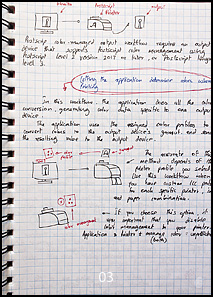 Monitor
Postscript
output
Postscript color-managed output workflow requires an output
device that supports Postscript color management using
Postscript level 2 version 2017 or later, or Postscript language
level 3.
Letting the application determine colors when
printing
In this workflow, the application does all the color
conversion, generating color data specific to one output
device.
The application uses the assigned color profiles to
convert colors to the output device's gamut, and sends
the resulting values to the output device.
The accuracy of this
method depends on the
printer profile you select
Use this workflow when
you have custom ICC profiles
for each specific printer, ink
and paper combination.
If you choose this option, it
very important that you disable
color management in your printer
03